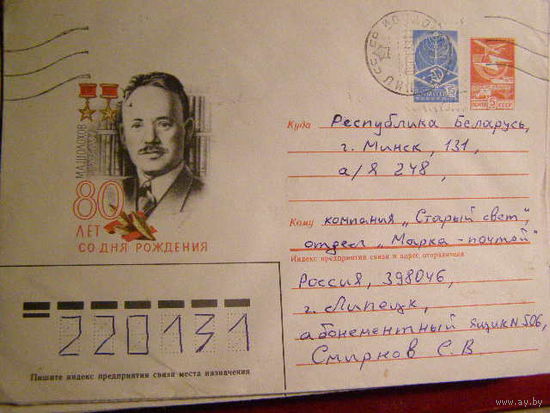 М.А.ШОЛОХОВ
80
ЛЕТ
СО ДНЯ РОЖДЕНИЯ
5
ПОЧТА СССР
Куда Республика Беларусь,
г. Минск, 131,
а/я 248,
Кому компания „Старый свет",
отдел „Марка-почтой"
Индекс предприятия связи и адрес отправителя
Россия, 398046,
г. Липецк,
абонементный ящик №506,
Смирнов С.В.
220131
Пишите индекс предприятия связи места назначения
www.ay.by